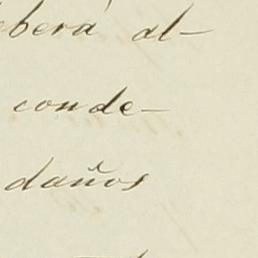 eberá al-
conde-
daños